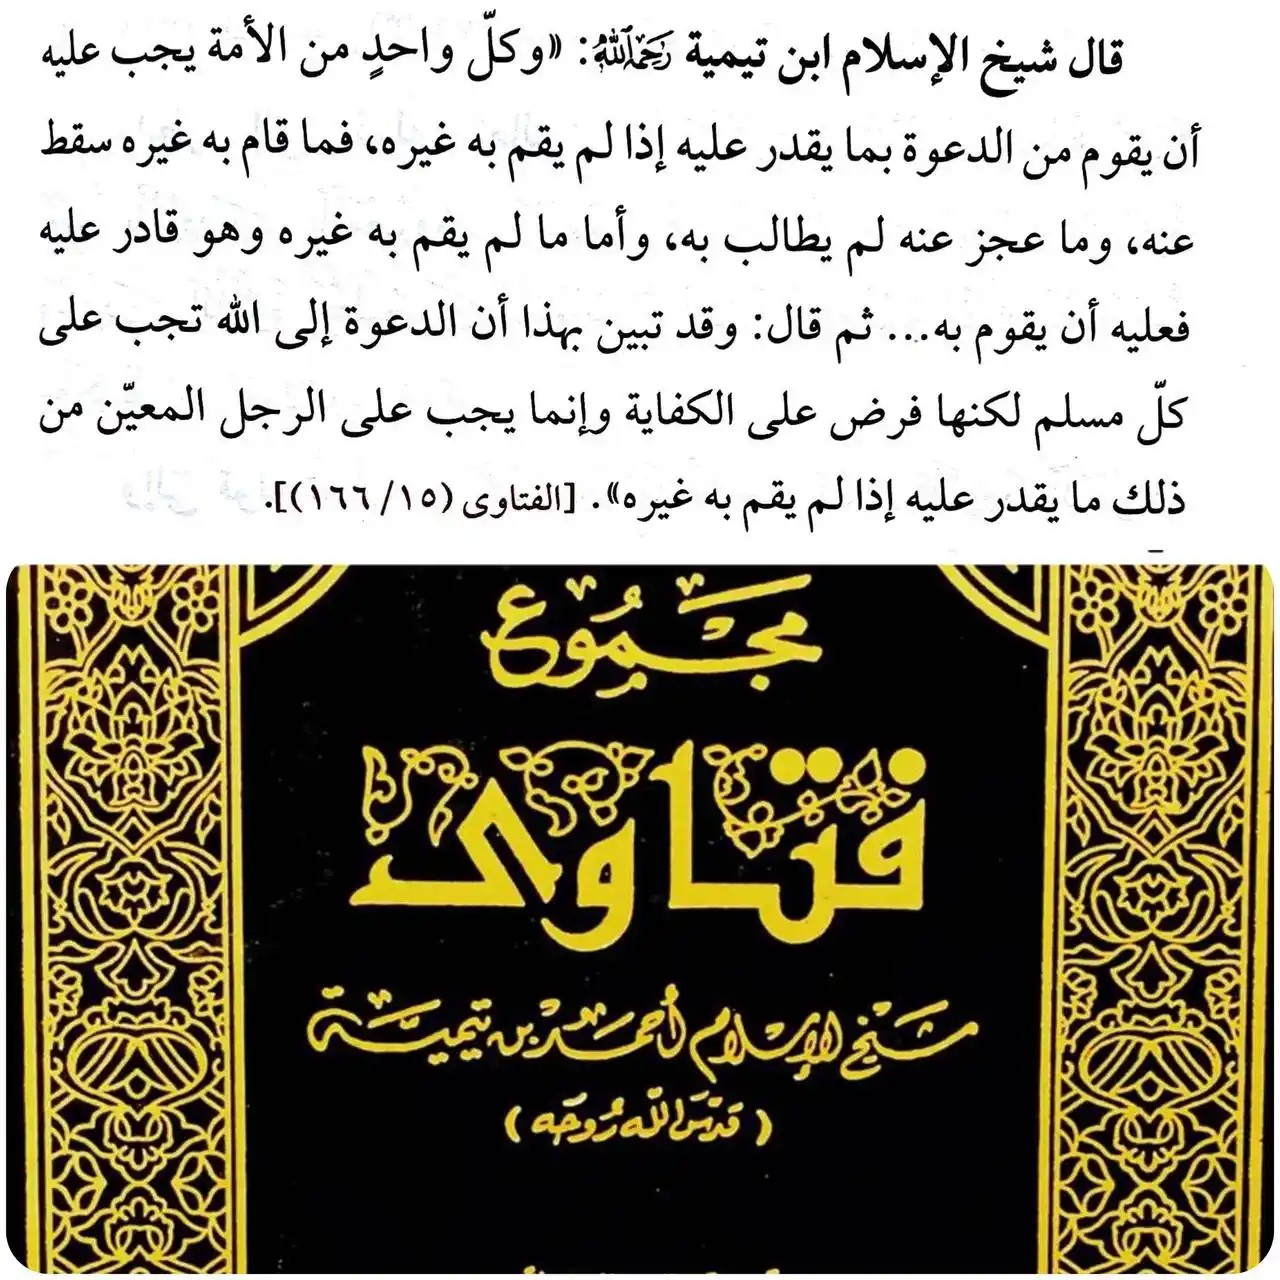 قال شيخ الإسلام ابن تيمية رَحِمَهُ ٱللَّهُ: «وكلّ واحدٍ من الأمة يجب عليه
أن يقوم من الدعوة بما يقدر عليه إذا لم يقم به غيره، فما قام به غيره سقط
عنه، وما عجز عنه لم يطالب به، وأما ما لم يقم به غيره وهو قادر عليه
فعليه أن يقوم به... ثم قال: وقد تبين بهذا أن الدعوة إلى الله تجب على
كلّ مسلم لكنها فرض على الكفاية وإنما يجب على الرجل المعيّن من
ذلك ما يقدر عليه إذا لم يقم به غيره». [الفتاوى (١٥/ ١٦٦)].
مجموع
فتاوى
شيخ الإسلام أحمد بن تيمية
(قدس الله روحه)